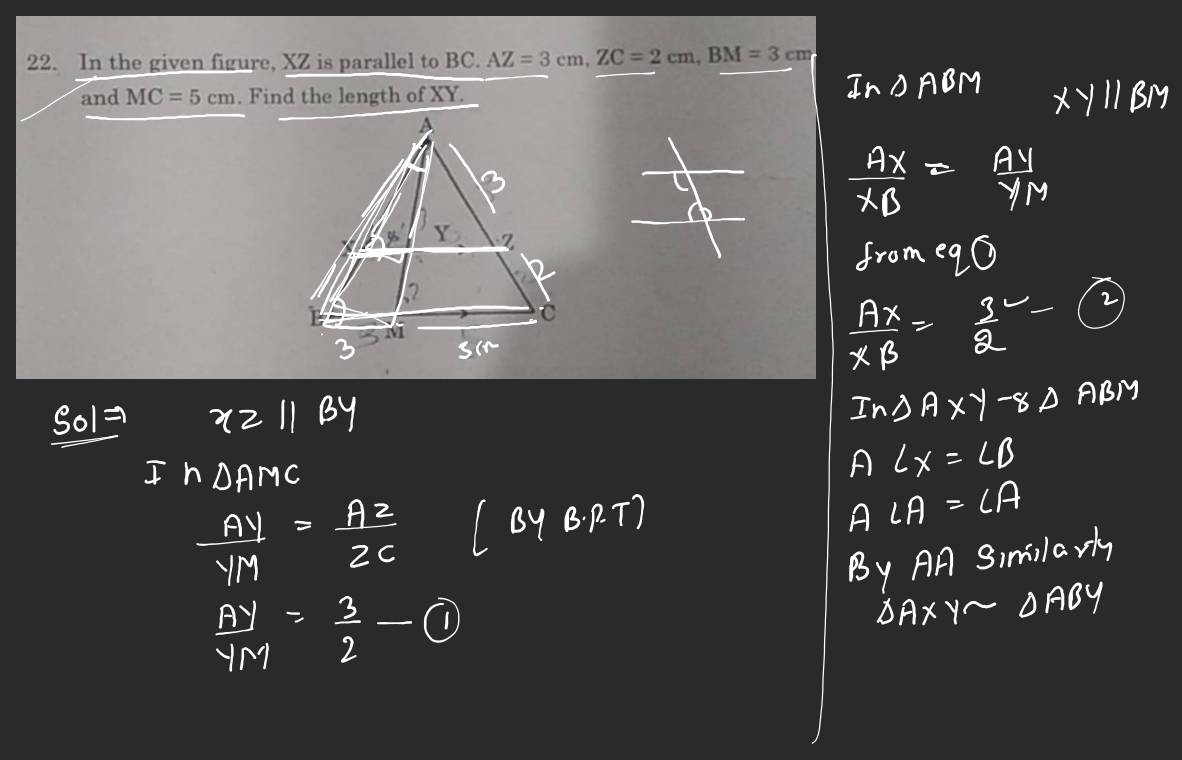 22. In the given figure, XZ is parallel to BC. AZ = 3 cm, ZC = 2 cm, BM = 3 cm
and MC = 5 cm. Find the length of XY.
A
3
X
Y
Z
2
B
M
C
3
5cm
Sol ⇒ xz || BY
In ΔAMC
AY/YM = AZ/ZC [BY B.P.T]
AY/YM = 3/2 — ①
In Δ ABM XY || BM
AX/XB = AY/YM
from eq ①
AX/XB = 3/2 — ②
In Δ AXY - 8 Δ ABM
A ∠X = ∠B
A ∠A = ∠A
By AA Similarly
ΔAXY ~ ΔABY